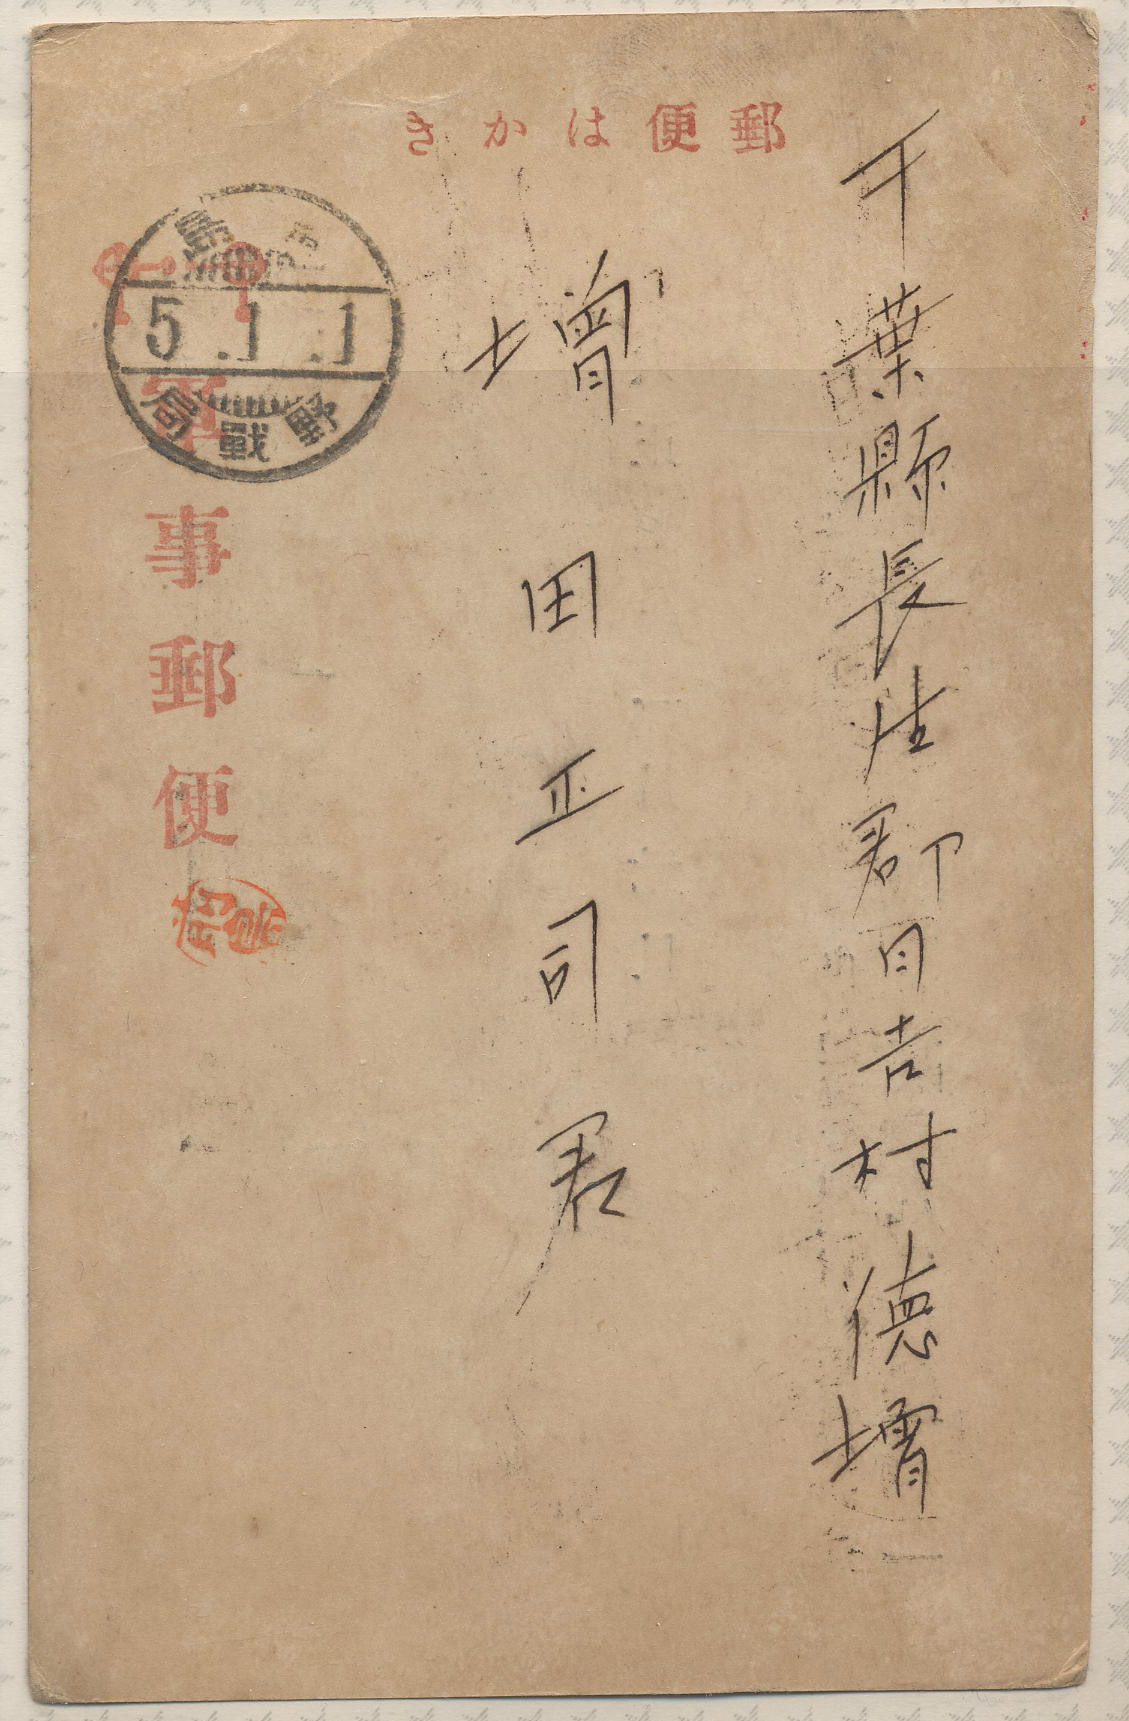 郵便はかき
千葉縣長生郡日吉村徳増
増田正司君
軍事郵便
5.1.1
野戰局